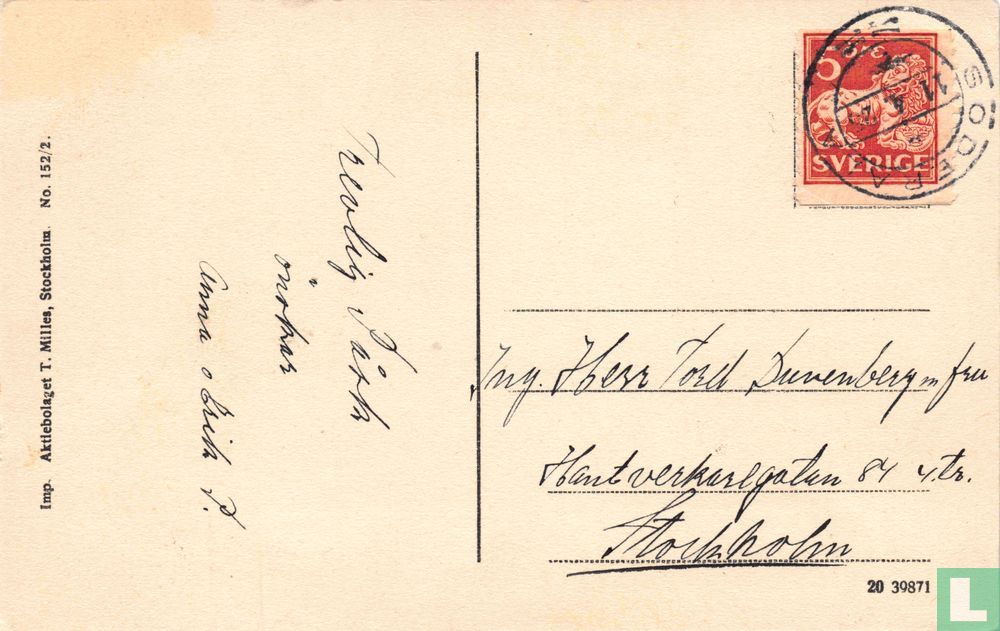 Imp. Aktiebolaget T. Milles, Stockholm. No. 152/2.
Trevlig Påsk
önskar
Anna o Erik P.
5
SVERIGE
SÖDERALA
11 4
Ing. Herr Tord Duvenberg m fru
Hantverkaregatan 84 4 tr.
Stockholm
20 39871
L